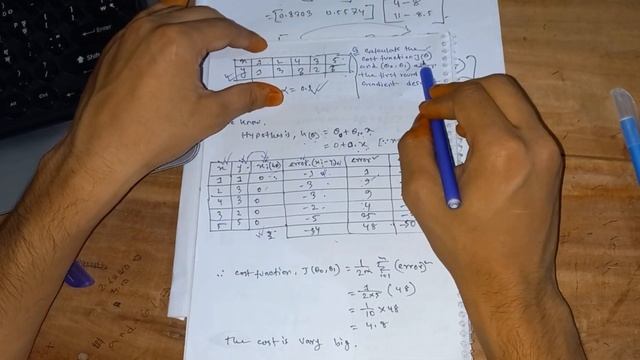 = [0.8303 0.5574] [4-8
11-8.5]
Q Calculate the
cost function J(θ)
and (θ₀, θ₁) after
the first round
Gradient des
x 1 2 4 3 5
y 1 3 3 2 5
know.
Hypothesis, h(θ) = θ₀ + θ₁.x
= 0 + 0.x
x y error error²
1 1 0 -1 1
2 3 0 -3 9
4 3 0 -3 9
3 2 0 -2 4
5 5 0 -5 25
-14 48 -50
∴ cost function, J(θ₀,θ₁) = 1/2m Σ i=1 (error)²
= 1/2×5 (48)
= 1/10 × 48
= 4.8
The cost is vary big.